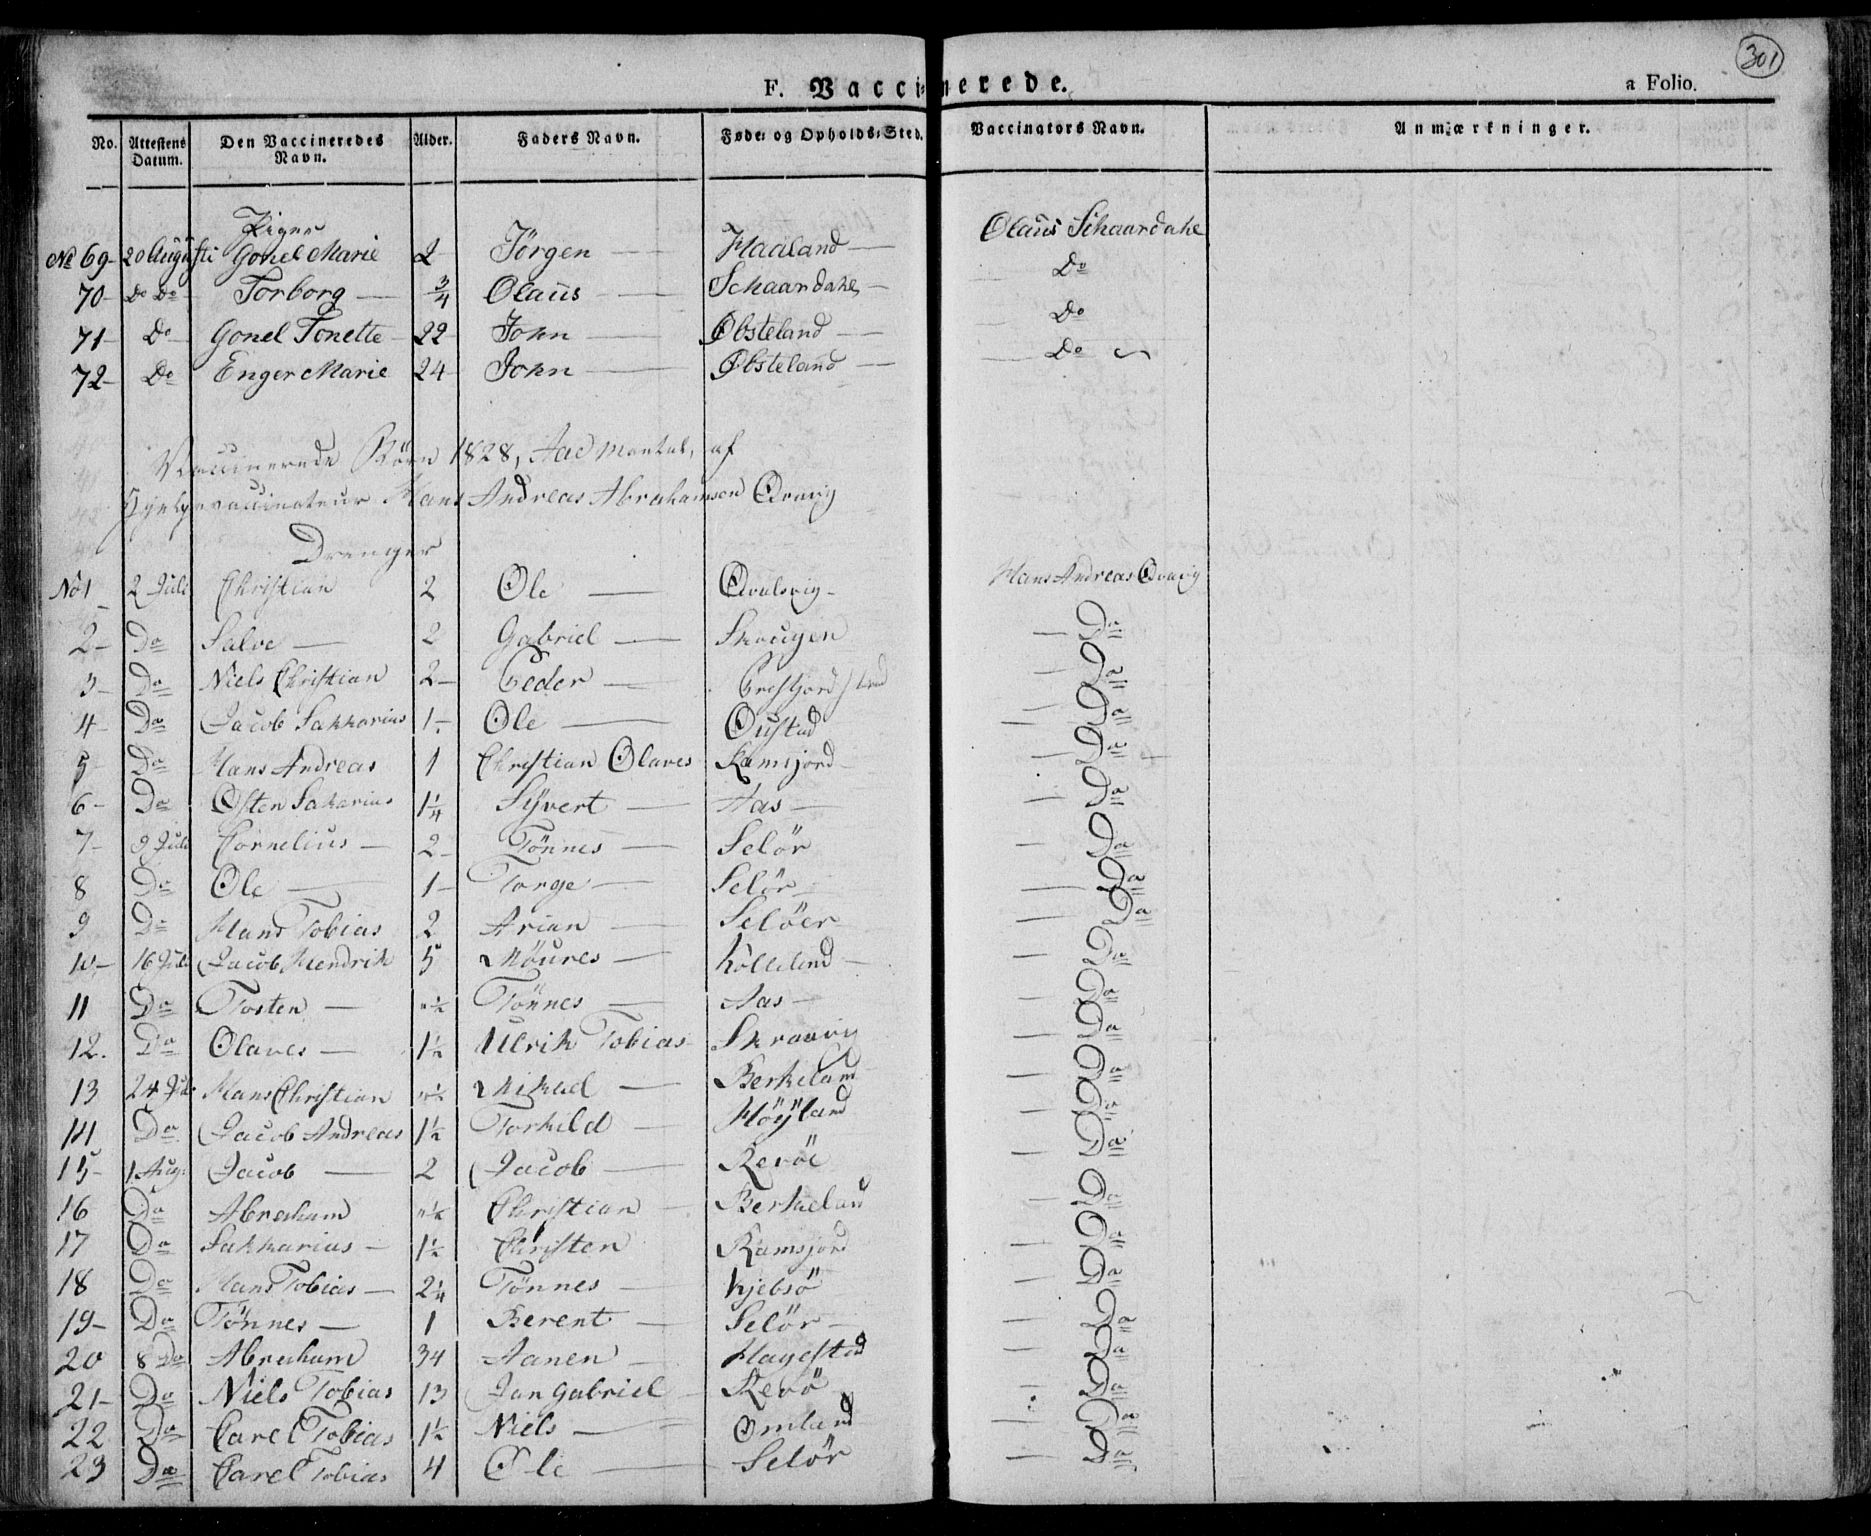 301
F. Vaccinerede. a Folio.
No. Attestens Datum. Den Vaccineredes Navn. Alder. Faders Navn. Føde- og Opholds-Sted. Vaccinators Navn. Anmærkninger.
Piger
No 69 20 Augusti Gonel Marie 2 Jörgen Haaland Olaüs Schaardahl
70 Do Do Torborg 3/4 Olaüs Schaardahl Do
71 Do Gonel Tonette 22 John Øbsteland Do
72 Do Enger Marie 24 John Øbsteland Do
Vaccinerede Börn 1828, Aad Mantal, af
Hjelpevaccinateur Hans Andreas Abrahamsen Qvavig
Drenger
No 1 2 Juli Christian 2 Ole Hans Andreas Qvavig
2 Do Salve 2 Gabriel Skougen Do
3 Do Niels Christian 2 Peder Do
4 Do Jacob Sakkarius 1 Ole Oustad Do
5 Do Hans Andreas 1 Christian Olaves Ramsjord Do
6 Do Osten Sakarius 1 1/4 Syvert Aas Do
7 9 Juli Cornelius 2 Tönnes Selör Do
8 Do Ole 1 Torge Selör Do
9 Do Hans Tobias 2 Arian Selöer Do
10 16 Juli Jacob Hendrik 5 Möures Kölleland Do
11 Do Tosten " 1/2 Tönnes Aas Do
12. Do Olaves 1 1/2 Ulrik Tobias Skravig Do
13 24 Juli Hans Christian " 1/2 Mikael Berkeland Do
14 Do Jacob Andreas 1 1/2 Torkild Höÿland Do
15 1 Aug: Jacob 2 Jacob Revöe Do
16 Do Abraham " 1/2 Christian Berkeland Do
17 Do Sakkarias 1 1/2 Christen Ramsjord Do
18 Do Hans Tobias 2 1/4 Tönnes Kjebsö Do
19 Do Tönnes 1 Berent Selör Do
20 8 Do Abraham 34 Aanen Hagestad Do
21 Do Niels Tobias 13 Jan Gabriel Revö Do
22 Do Carel Tobias 1 1/2 Niels Omland Do
23 Do Carel Tobias 4 Ole Selör Do